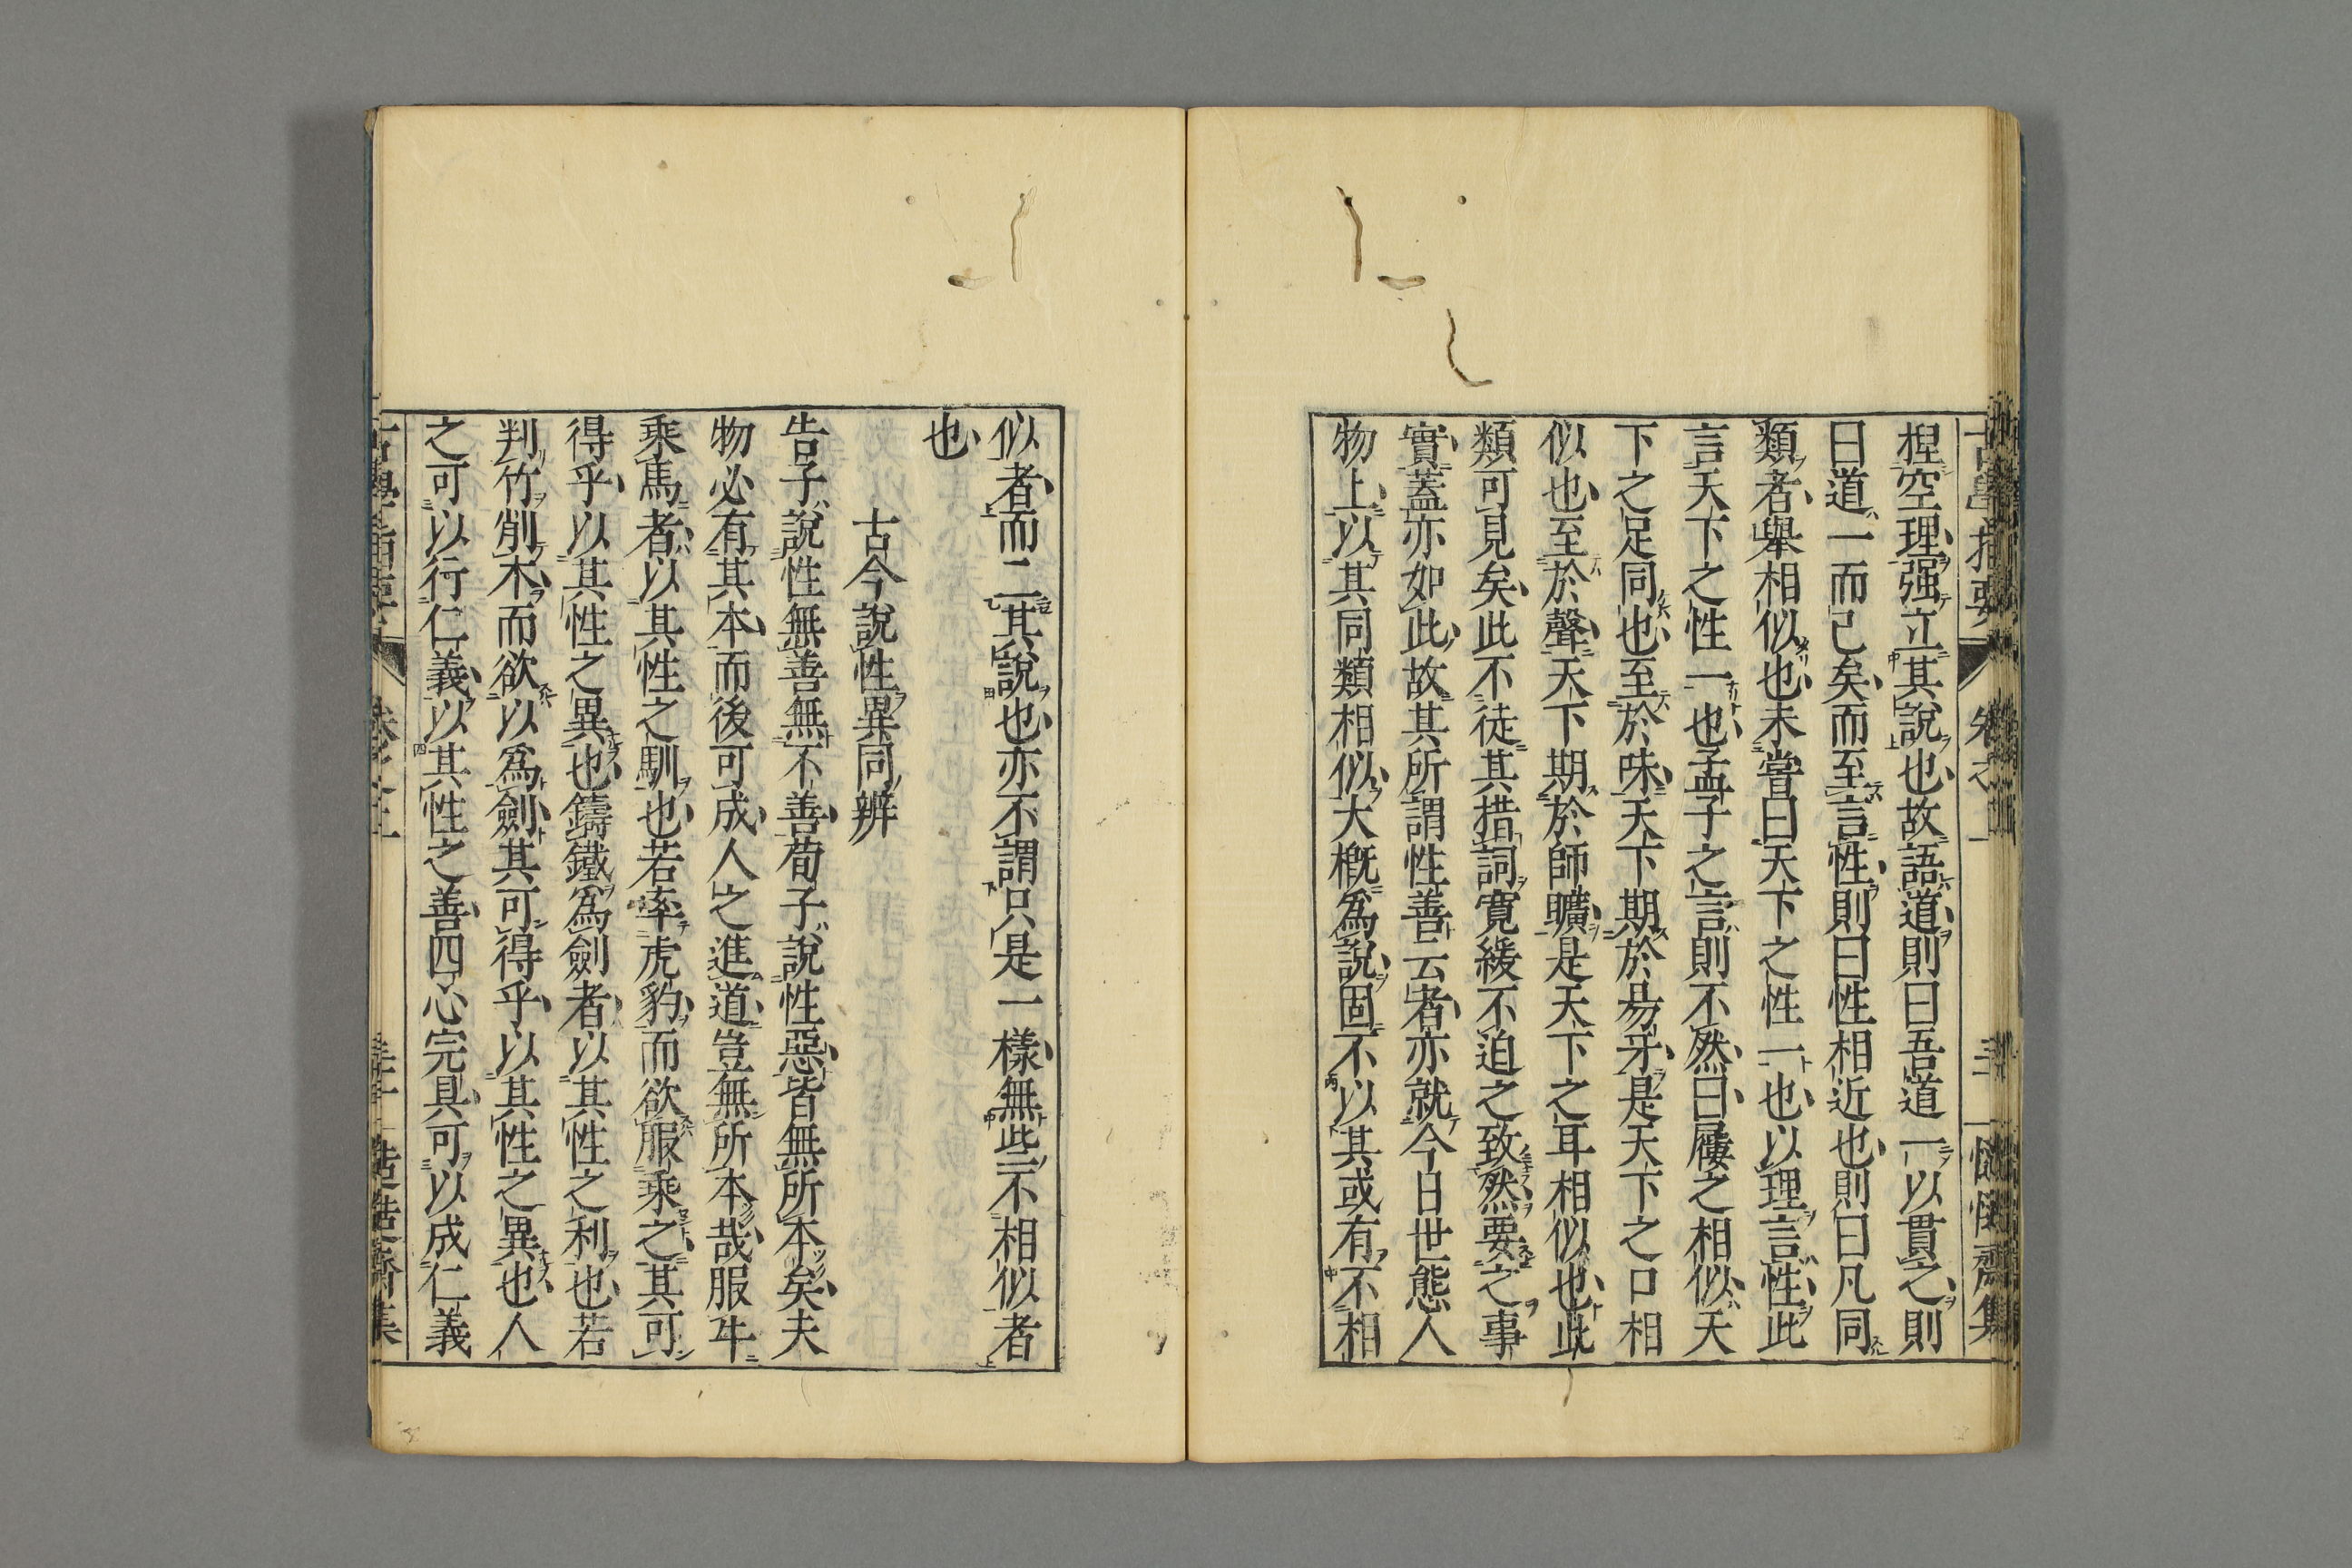 捏空理强立其說也故語道則曰吾道一以貫之則
曰道一而已矣而至言性則曰性相近也則曰凡同
類者舉相似也未嘗曰天下之性一也以理言性此
言天下之性一也孟子之言則不然曰屨之相似天
下之足同也至於味天下期於易牙是天下之口相
似也至於聲天下期於師曠是天下之耳相似也此
類可見矣此不徒其措詞寛緩不迫之致然要之事
實蓋亦如此故其所謂性善云者亦就今日世態人
物上以其同類相似大概爲說固不以其或有不相
似者而二其說也亦不謂只是一樣無些不相似者
也
古今說性異同辨
告子說性無善無不善荀子說性惡皆無所本矣夫
物必有其本而後可成人之進道豈無所本哉服牛
乘馬者以其性之馴也若率虎豹而欲服乘之其可
得乎以其性之異也鑄鐵爲劍者以其性之利也若
判竹削木而欲以爲劍其可得乎以其性之異也人
之可以行仁義以其性之善四心完具可以成仁義
古學指要 卷之